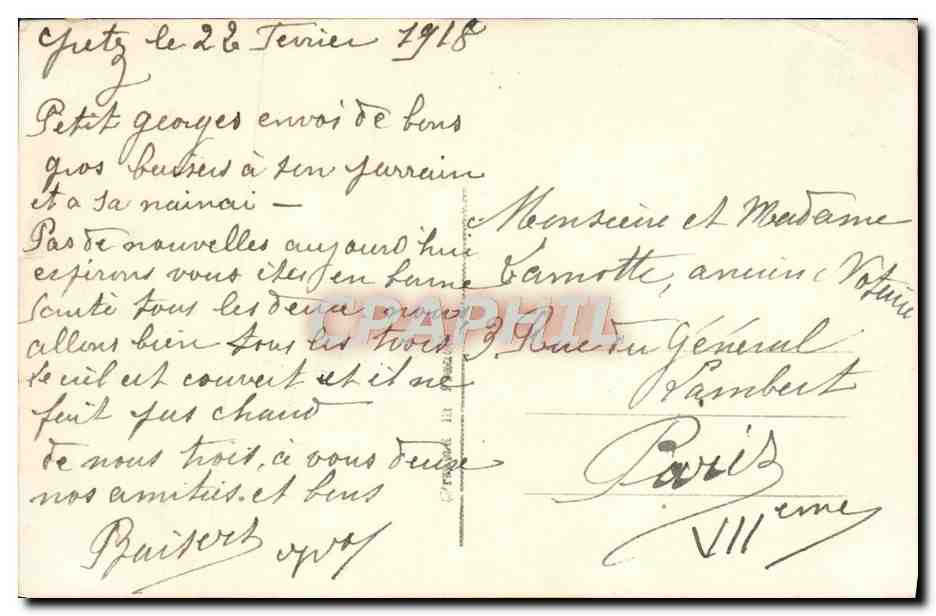 le 22 Fevrier 1918
Petit georges envoi de bons
gros baisers à son parrain
et a sa nainai —
Pas de nouvelles aujourd'hui
esperons vous êtes en bonne
santé tous les deux nous
allons bien tous les trois
Le ciel est couvert et il ne
fait pas chaud
de nous trois, à vous deux
nos amitiés et bons
Baisers
Monsieur et Madame
Lamotte, ancien Notaire
3 Rue du Général
Lambert
Paris
VII eme
CPAPHIL